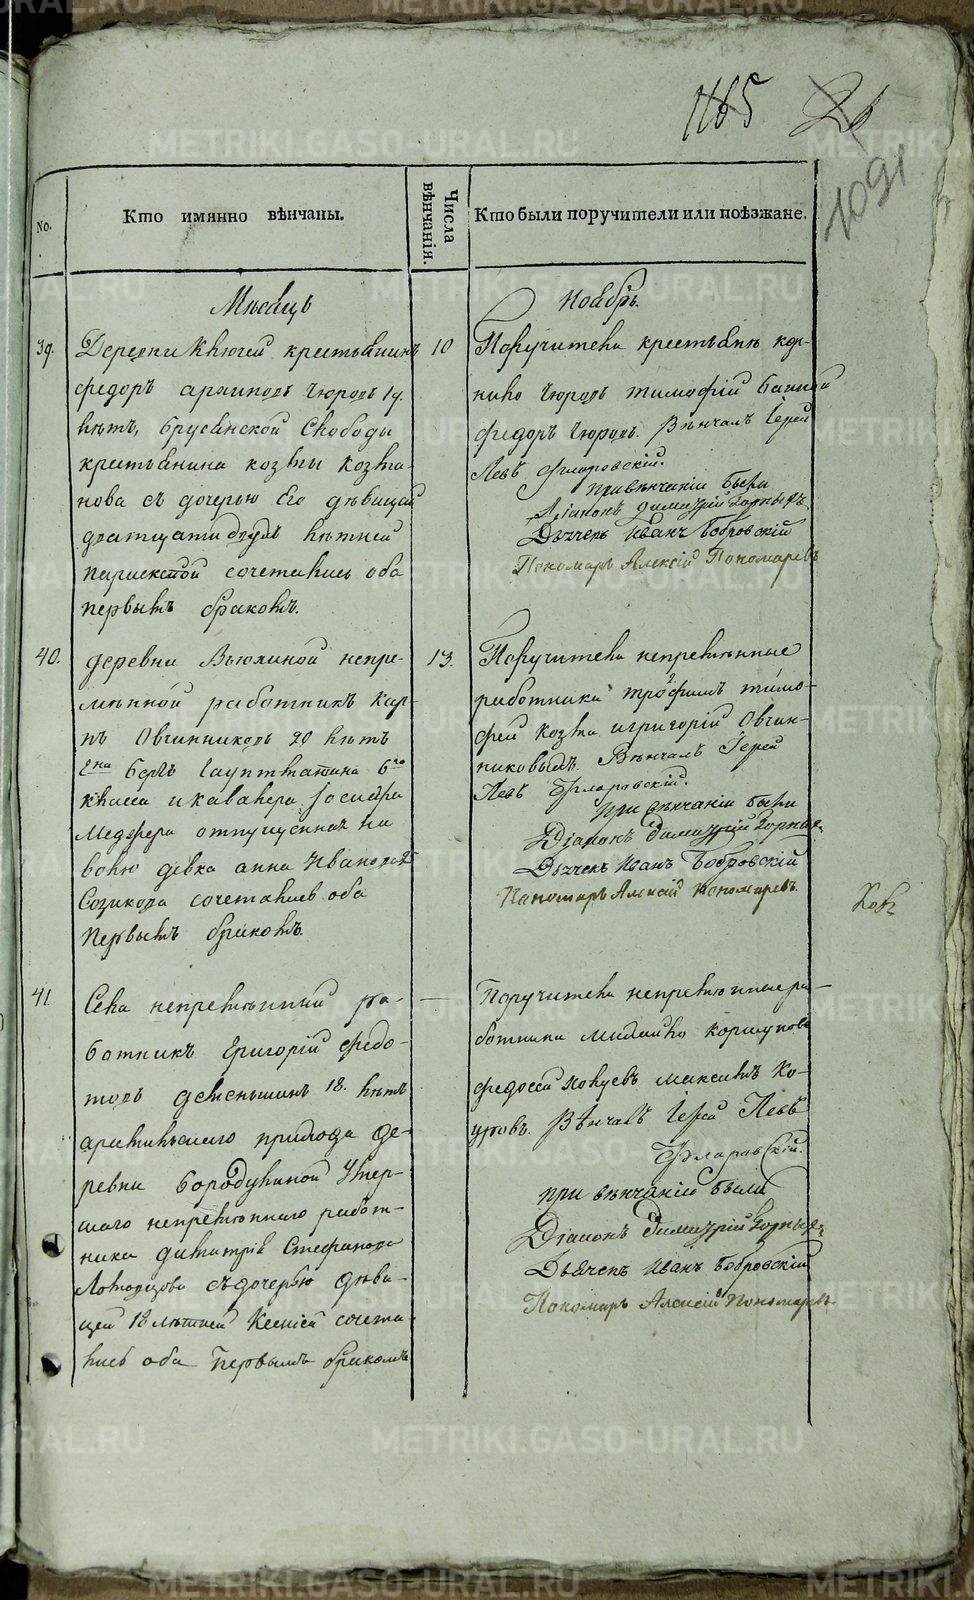 1165 26
1091
No.
Кто имянно вѣнчаны.
Числа вѣнчанія.
Кто были поручители или поѣзжане.
Мѣсяцъ Ноябрь.
39.
Деревни Ключей крестьянинъ
федоръ архиповъ Чюровъ 19
лѣтъ, брусянской Слободы
крестьянина козмы козма-
нова съ дочерью Его дѣвицей
дватцати лѣтней
сочетались оба
первымъ бракомъ.
10
Поручители крестьяне кор-
нило Чюровъ тимофій
федоръ Чюровъ. Вѣнчалъ Іерей
Левъ Флоровскій.
при вѣнчаніи были
Діаконъ Димитрій
Дьячекъ Иванъ Бобровскій
Пономарь Алексій Пономаревъ
40.
деревни Вьюхиной непре-
мѣнной работникъ Кар-
пъ Овчинниковъ 20 лѣтъ
Гна Бергъ Гауптмана 6го
класса и кавалера Іосифа
Медхера отпущенная на
волю девка анна Иванова
Созикова сочетались оба
Первымъ бракомъ.
13.
Поручители непремѣнные
работники трофимъ тимо-
фей козма и григорій Овчин-
никовымъ. Вѣнчалъ Іерей
Левъ Флоровскій.
при вѣнчаніи были
Діаконъ Димитрій
Дьячекъ Иванъ Бобровскій
Пономарь Алексій Пономаревъ.
41.
Села непремѣнний ра-
ботникъ Григорій федо-
товъ деменьшинъ 18. лѣтъ
арамильскаго прихода де-
ревни Бородулиной Умер-
шаго непремѣннаго работ-
ника димитрія Стефанова
съ дочерью дѣви-
цей 18 лѣтней Ксеніей сочета-
лись оба Первымъ бракомъ
—
Поручители непремѣнные ра-
ботники михайло коршуновъ
федосей максимъ Ко-
чювъ. Вѣнчалъ Іерей Левъ
Флоровскій.
при вѣнчаніи были
Діаконъ Димитрій
Дьячекъ Иванъ Бобровскій
Пономарь Алексій Пономаревъ
METRIKI.GASO-URAL.RU